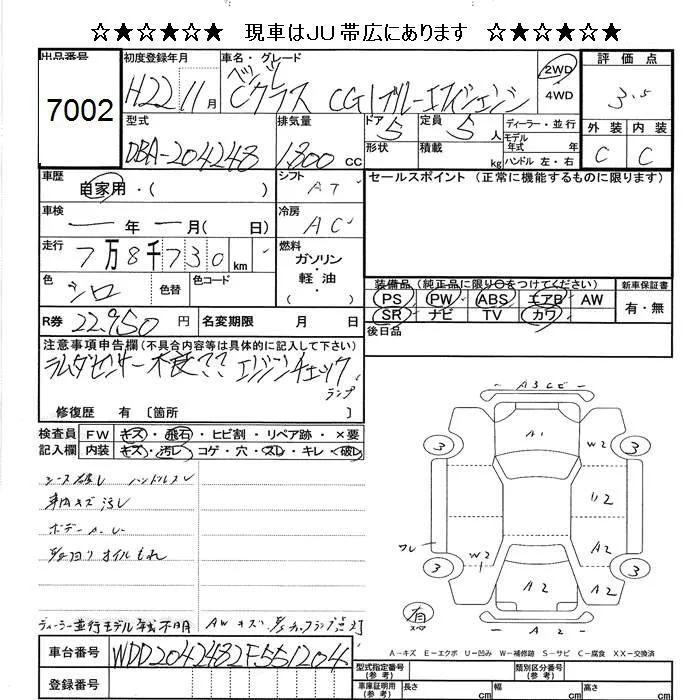 ☆★☆★☆★ 現車はJU帯広にあります ☆★☆★☆★
出品番号 初度登録年月 車名・グレード 評価点
7002 H22 11月 ベンツ Cクラス CGIブルーエフィシェンシ 2WD 4WD 3.5
外装 内装
C C
型式 排気量 ドア 定員 ディーラー・並行
DBA-204248 1.800cc 5 5人 モデル年式 年
形状 積載 kg ハンドル 左・右
車歴 シフト セールスポイント (正常に機能するものに限ります)
自家用・( ) AT
車検 冷房
ー年 ー月( 日) AC
走行 燃料
7万8千730km ガソリン・軽油
色 色替 色コード ( )
シロ
装備品(純正品に限り○をつけてください) 新車保証書
PS PW ABS エアB AW 有・無
SR ナビ TV カワ
R券 22.950円 名変期限 月 日 後日品
注意事項申告欄(不具合内容等は具体的に記入して下さい)
ラムダセンサー不良?? エンジンチェックランプ
修復歴 有 〔箇所 〕
検査員 FW キズ・飛石・ヒビ割・リペア跡・×要
記入欄 内装 キズ・汚レ・コゲ・穴・スレ・キレ・破レ
シート破レ ハンドルスレ
車内キズ汚レ
オイルもれ
ディーラー並行モデル年式不明 AWキズ
A3 A1 W2 U2 A2 W2 A2 A2 A2
3 3 3 3
フレ
有 スペア
A-キズ E-エクボ U-凹み W-補修跡 S-サビ C-腐食 XX-交換済
車台番号 WDD2042482F551204
登録番号
型式指定番号(参考) 類別区分番号(参考)
車庫証明用(参考) 長さ cm 幅 cm 高さ cm